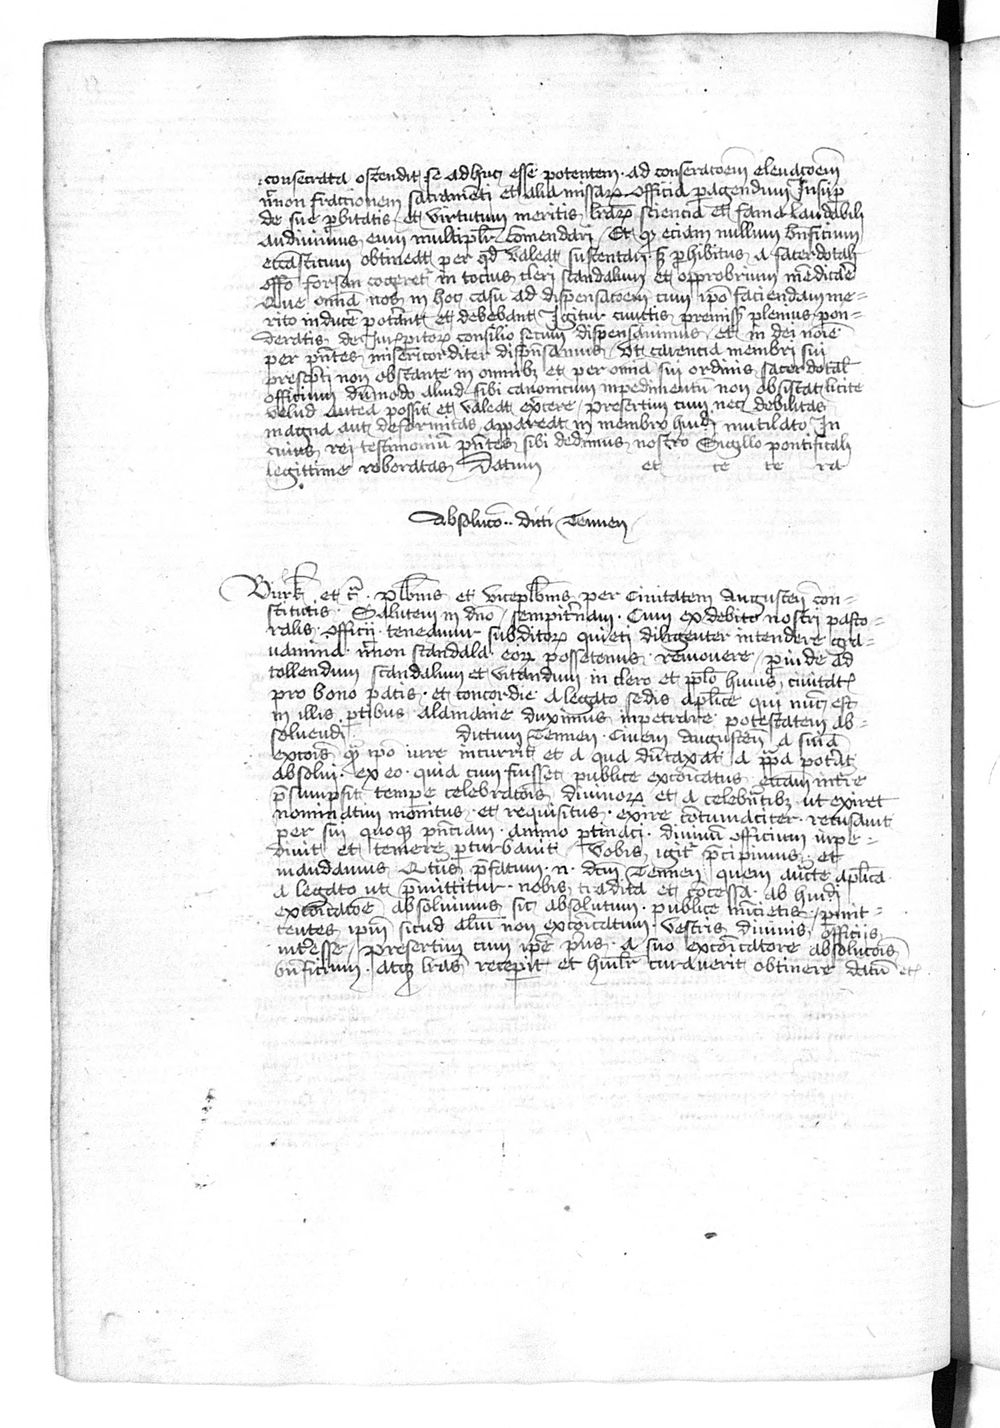 consecrata ostendit se adhuc esse potentem ad consecracoem eleuacoem
necnon fraccionem sacramenti et alia missarum officia peragendum Insuper
de sue probitatis et virtutum meritis lrarum sciencia et fama laudabili
audiuimus eum multiplr comendari Et quod eciam nullum bnficium
eccasticum obtineat per qd valeat sustentari et prohibitus a sacerdotali
offo forsan cogeretur in tocius cleri scandalum et opprobrium mendicare
Que omnia nos in hoc casu ad dispensacoem cum ipo faciendam me=
rito inducere poterant et debebant Igitur cunctis premissis plenius pon=
deratis de Jurisperitorum consilio secum dispensauimus et in dei noie
per pntes misericorditer dispensamus Vt carencia membri sui
prescripti non obstante in omnibus et per omnia sui ordinis sacerdotalis
officium dummodo aliud sibi canonicum inpedimentum non obsistat licite
velud antea possit et valeat exercere presertim cum nec debilitas
magna aut deformitas appareat in membro huiusmodi mutilato In
cuius rei testimonium pntes sibi dedimus nostro Sigillo pontificali
legittime roboratas Datum et ce te ra
Absoluco dicti Tennen
Burk et c plbnis et viceplbnis per Ciuitatem Augusten con=
stitutis Salutem in dno sempiternam Cum ex debito nostri pasto=
ralis officij teneamur subditorum quieti diligenter intendere gra=
uamina necnon scandala eorum possetenus remouere proinde ad
tollendum scandalum et vitandum in clero et plo huius ciuitatis
pro bono pacis et concordie a legato sedis aplice qui nunc est
in illis partibus alamanie duximus inpetrare potestatem ab=
soluendi dictum Tennen Ciuem Augusten a sina
excois quam ipo iure incurrit et a qua dumtaxat a papa poterat
absolui ex eo quia cum fuisset publice excoicatus eccam intrare
presumpsit tempe celebracois diuinorum et a celebrantibus ut exiret
nominatim monitus et requisitus exire contumaciter recusauit
per sui quoque pnciam animo pertinaci diuinum officium inpe=
diuit et temere perturbauit Vobis igitur precipimus et
mandamus Quatenus prefatum n dcm Tennen quem aucte aplica
a legato ut premittitur nobis tradita et concessa ab huiusmodi
excoicacoe absoluimus sic absolutum publice nuncietis permit=
tentes ipm sicud alium non excoicatum vestris diuinis officiis
interesse presertim cum ipe prius a suo excoicatore absolucois
bnficium atque lras receperit et humilr curauerit obtinere datum etc